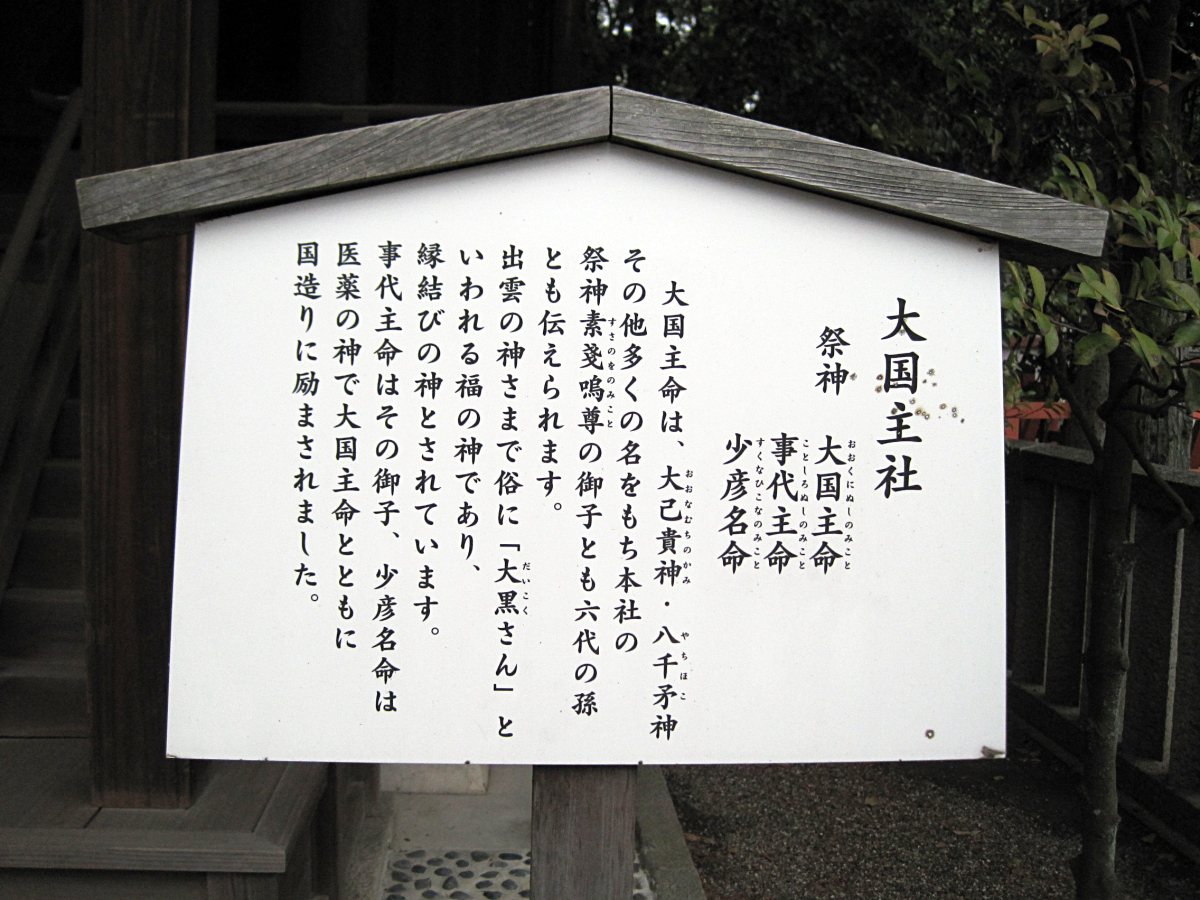 大国主社
祭神
大国主命
おおくにぬしのみこと
事代主命
ことしろぬしのみこと
少彦名命
すくなひこなのみこと
大国主命は、大己貴神・八千矛神
おおなむちのかみ
やちほこ
その他多くの名をもち本社の
祭神素戔嗚尊の御子とも六代の孫
すさのをのみこと
とも伝えられます。
出雲の神さまで俗に「大黒さん」と
だいこく
いわれる福の神であり、
縁結びの神とされています。
事代主命はその御子、少彦名命は
医薬の神で大国主命とともに
国造りに励まされました。